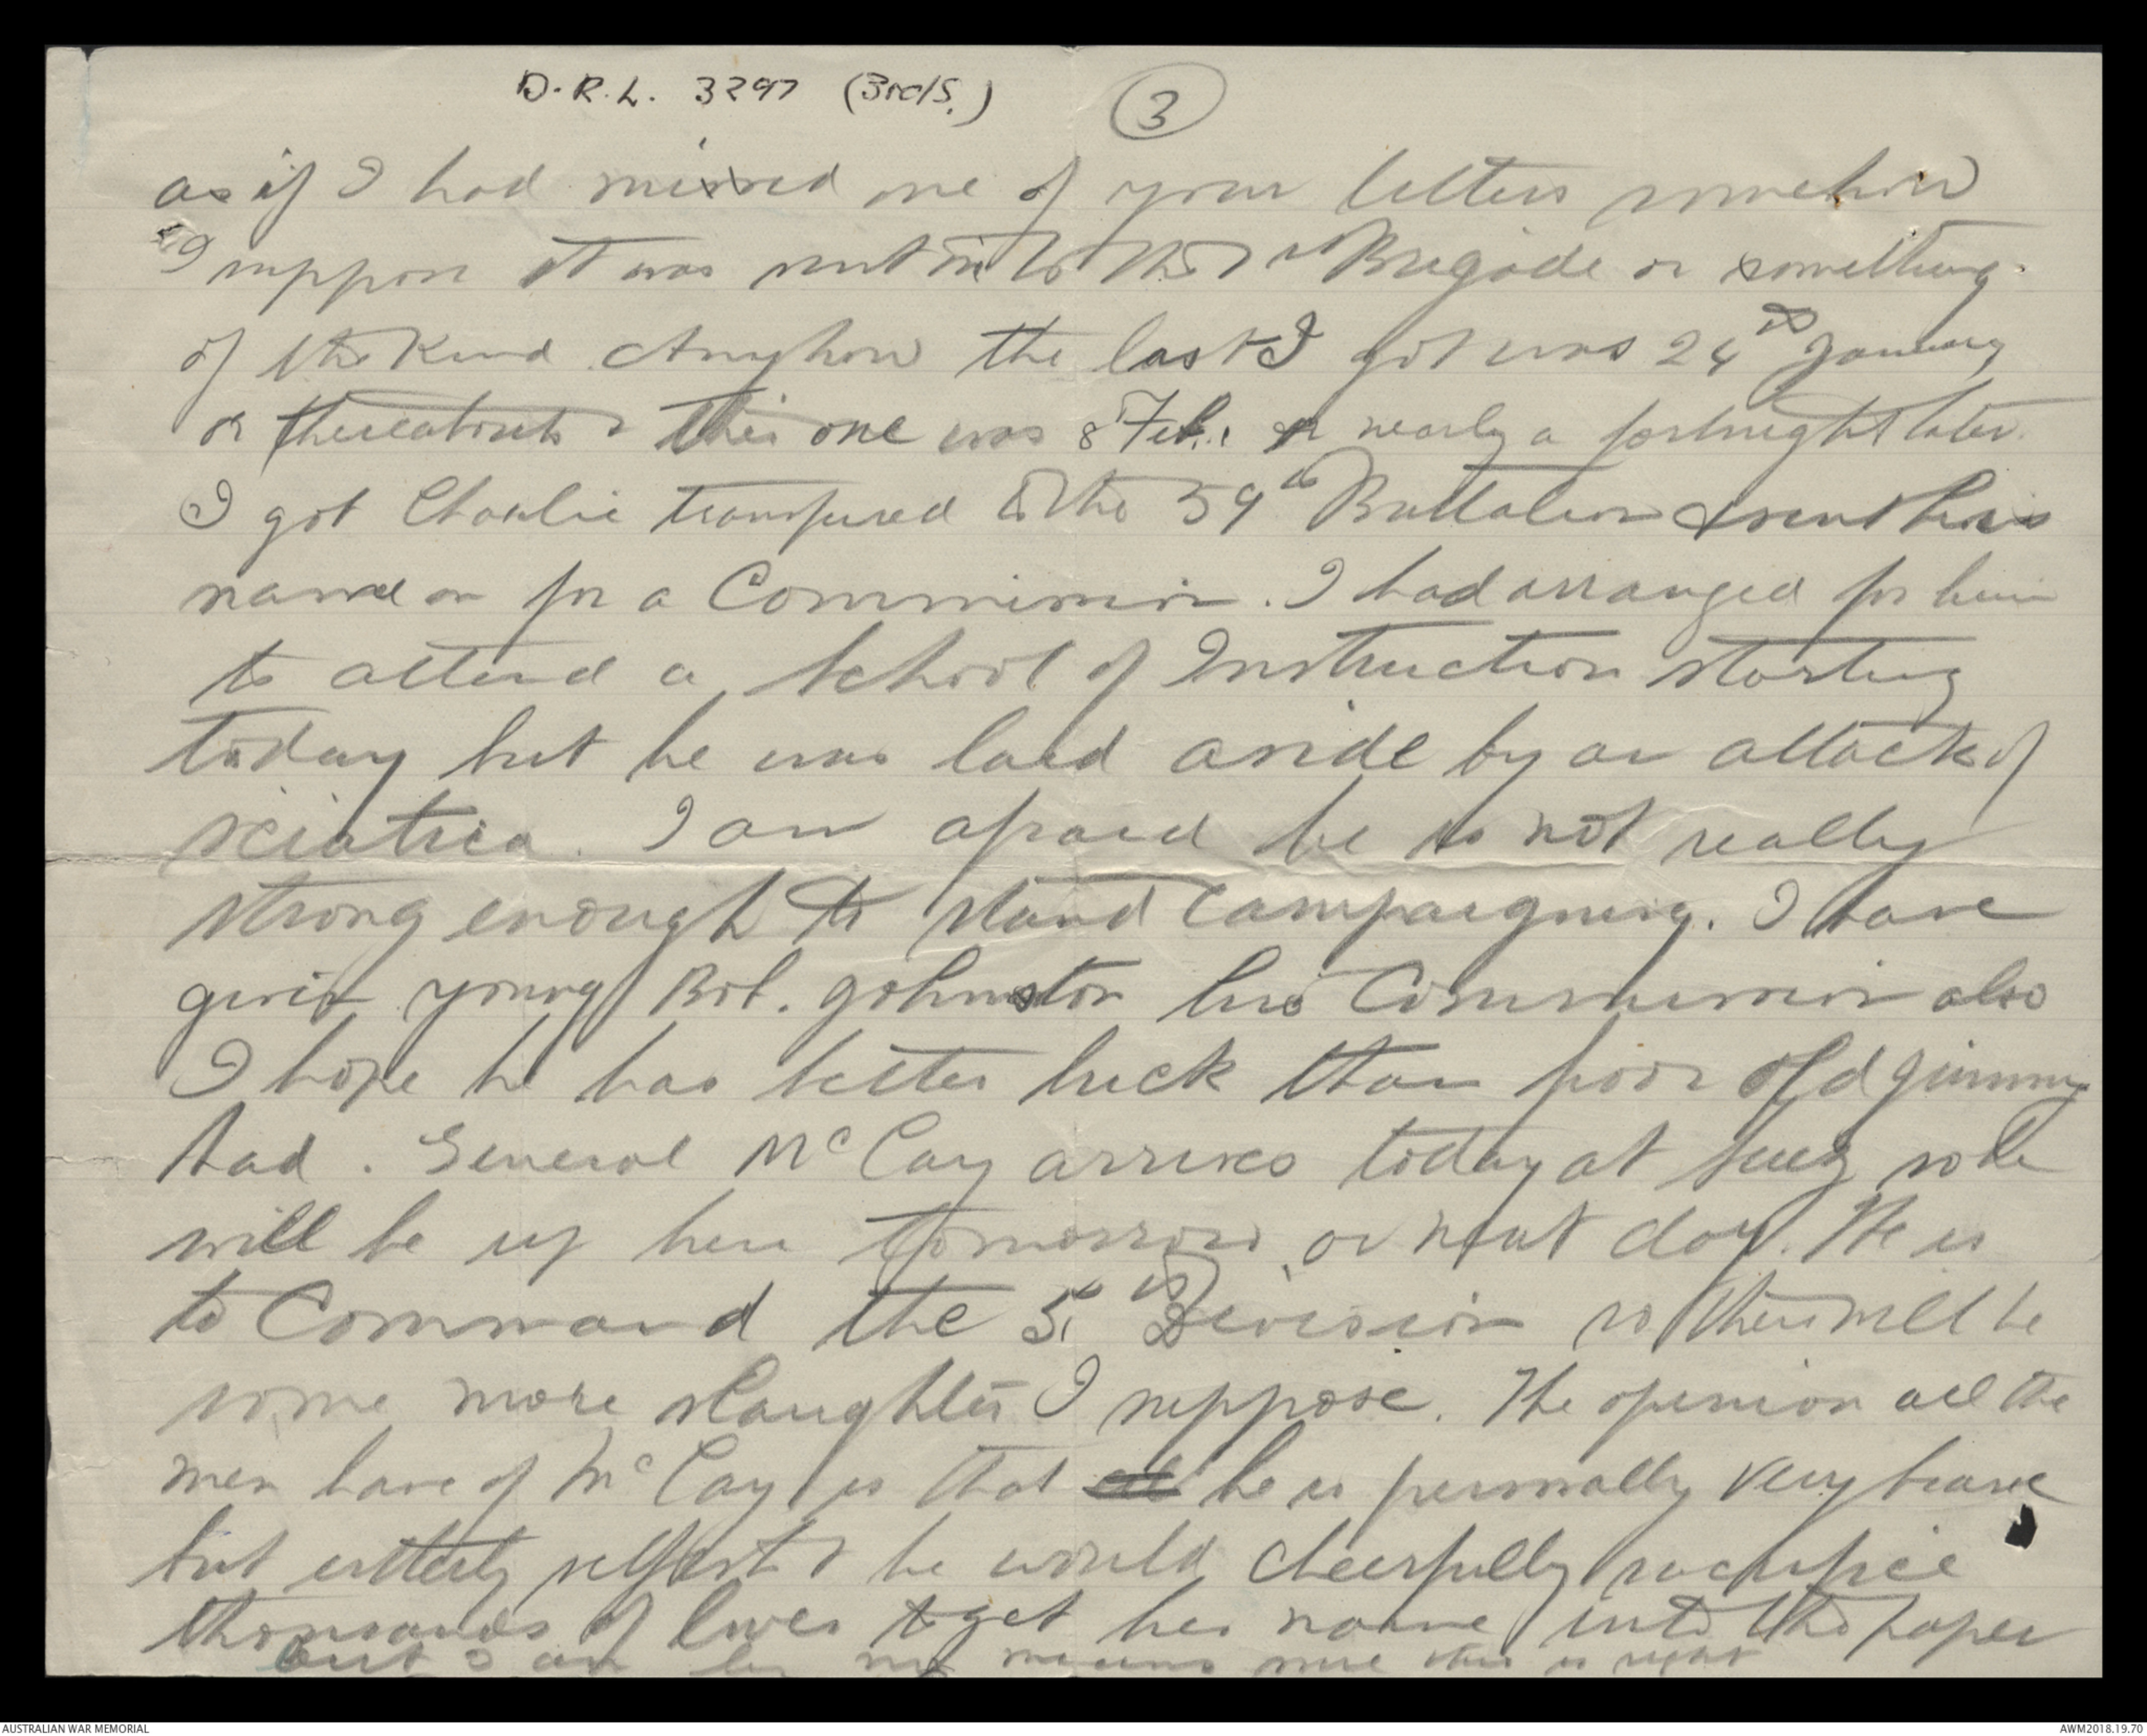 D.R.L. 3297 (3rd/S.)
3
as if I had missed one of your letters somehow
I suppose it was sent to the Brigade or something
of the kind. Anyhow the last I got was 24th January
or thereabouts & this one was 8 Feb. or nearly a fortnight later.
I got Charlie transfered to the 59th Battalion & sent his
name on for a Commission. I had arranged for him
to attend a School of Instruction starting
today but he was laid aside by an attack of
sciatica. I am afraid he is not really
strong enough to stand campaigning. I have
given young Bob. Johnston his Commission also
I hope he has better luck than poor old Jimmy
had. General McCay arrives today at Suez so he
will be up here tomorrow or next day. He is
to Command the 5th Division so there will be
some more slaughter I suppose. The opinion all the
men have of McCay is that he is personally very brave
but utterly selfish & he would cheerfully sacrifice
thousands of lives to get his name into the paper
but I am by no means sure this is right
AUSTRALIAN WAR MEMORIAL
AWM2018.19.70